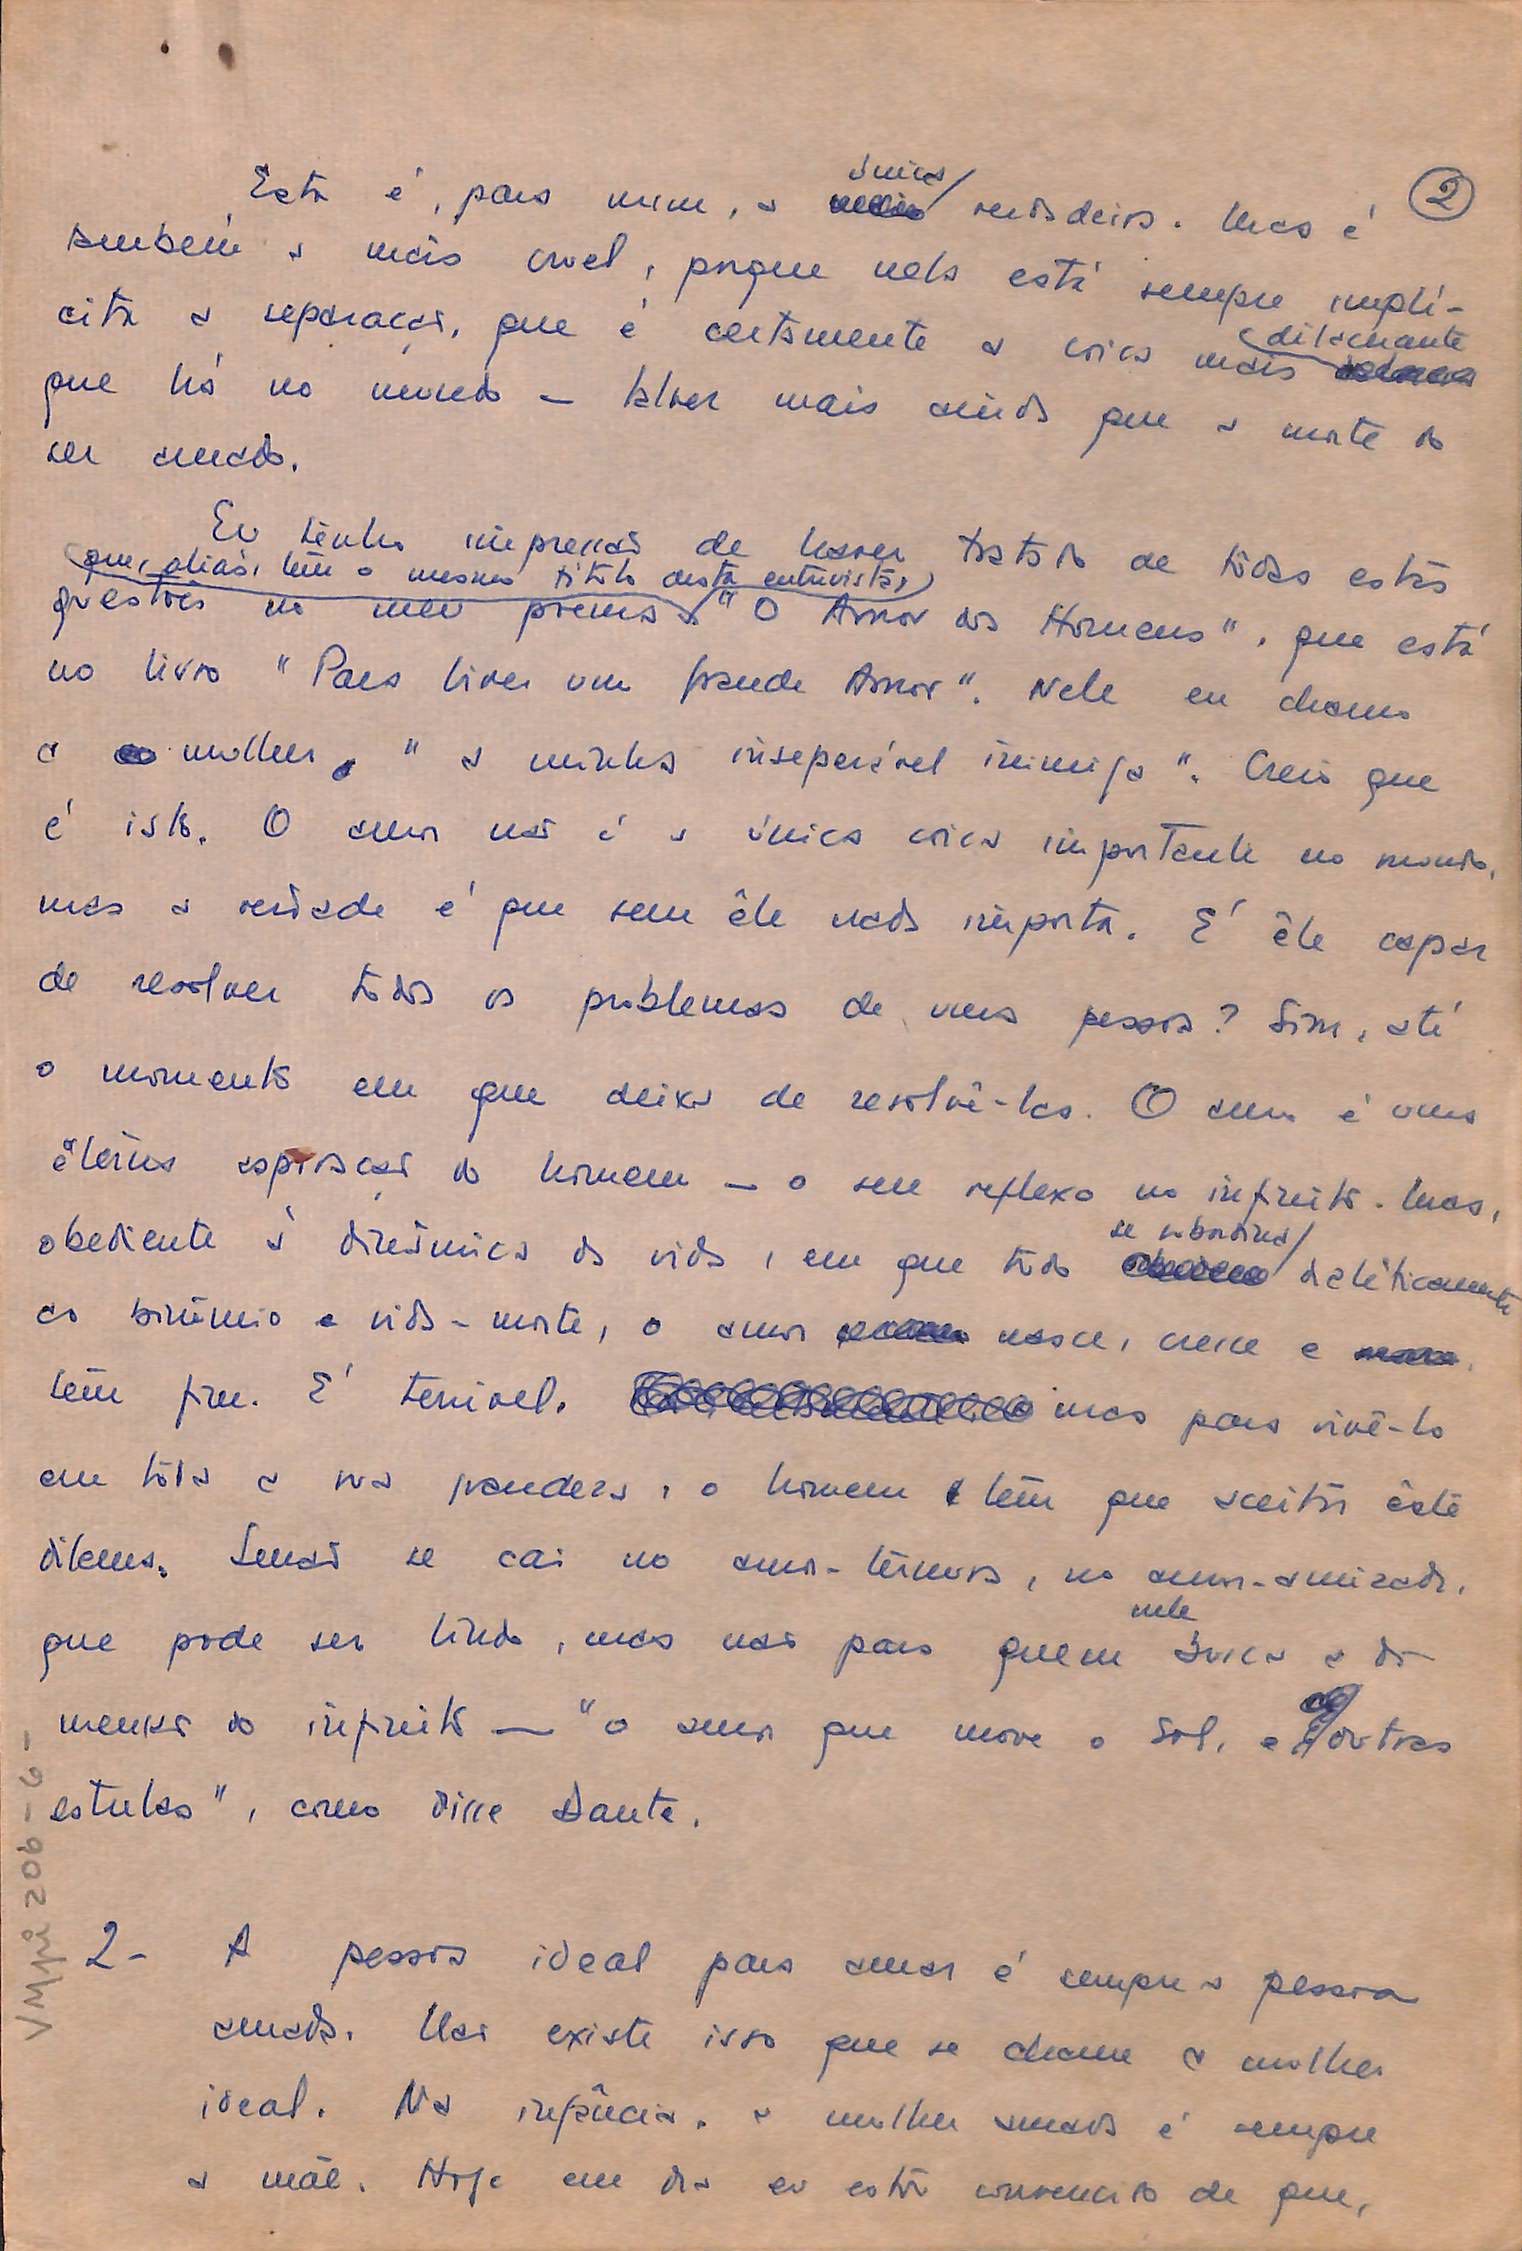 2
Esta é, para mim, a única verdadeira. Mas é
também a mais cruel, porque nela está sempre implí-
cita a separação, que é certamente a coisa mais dilacerante
que há no mundo — talvez mais ainda que a morte do
ser amado.
Eu tenho impressão de haver tratado de tôdas estas
questões no meu poema "O Amor dos Homens", que, aliás, têm o mesmo título desta entrevista, que está
no livro "Para Viver um Grande Amor". Nele eu chamo
a mulher, "a minha inseparável inimiga". Creio que
é isto. O amor não é a única coisa importante no mundo,
mas a verdade é que sem êle nada importa. É êle capaz
de resolver todos os problemas de uma pessoa? Sim, até
o momento em que deixa de resolvê-los. O amor é uma
eterna aspiração do homem — o seu reflexo no infinito. Mas,
obediente à dinâmica da vida, em que tudo se subordina dialéticamente
ao binômio vida-morte, o amor nasce, cresce e
têm fim. É terrível. mas para vivê-lo
em tôda a sua grandeza, o homem têm que aceitar êste
dilema. Senão se cai no amor-ternura, no amor-amizade,
que pode ser lindo, mas não para quem nele busca a di-
mensão do infinito — "o amor que move o Sol, e outras
estrelas", como disse Dante.
2- A pessoa ideal para amar é sempre a pessoa
amada. Não existe isso que se chame a mulher
ideal. Na infância, a mulher amada é sempre
a mãe. Hoje em dia eu estou convencido de que,
VMpi 206-6-